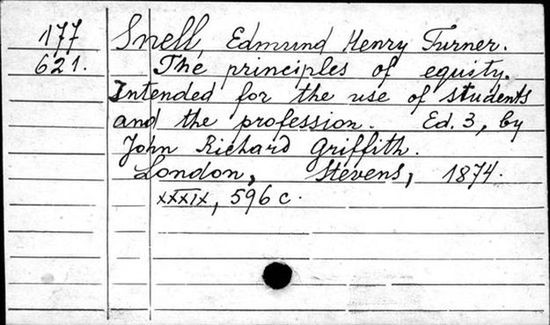 177 Snell, Edmund Henry Turner.
621. The principles of equity.
Intended for the use of students
and the profession. Ed. 3, by
John Richard Griffith.
London, Stevens, 1874.
XXXIX, 596 c.